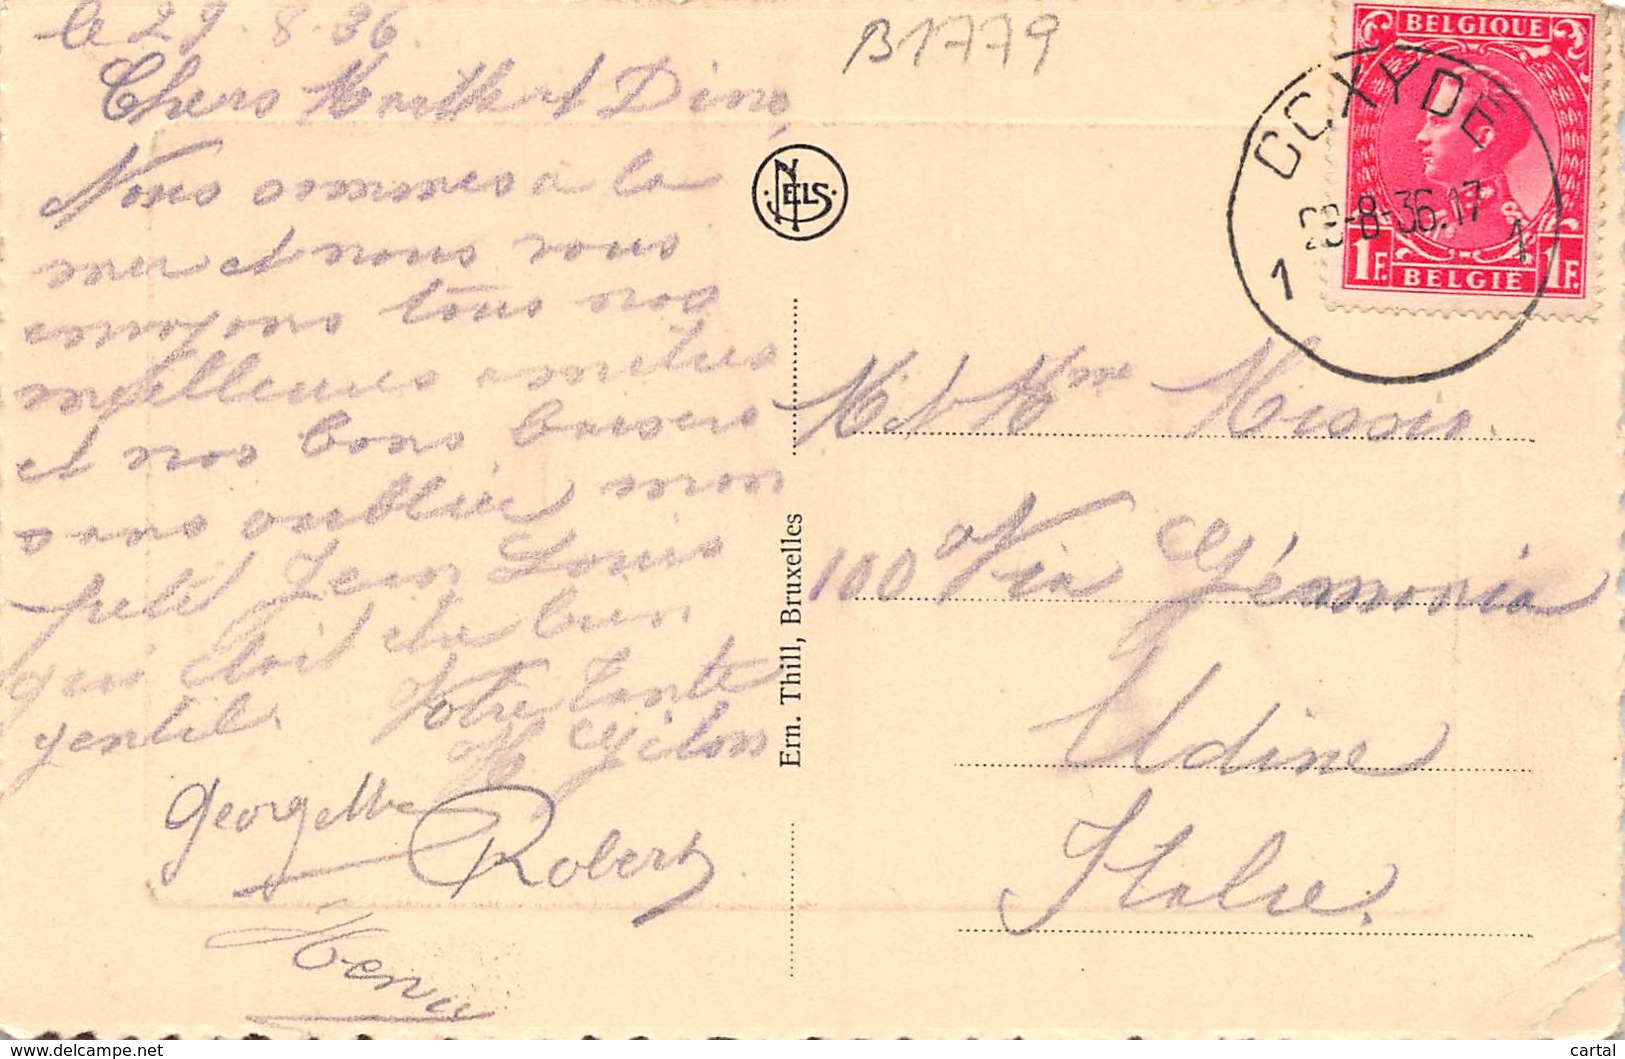 le 29-8-36
B1779
Chers Marthe et Dino,
Nous sommes à la
mer et nous vous
envoyons tous nos
meilleures amitiés
et nos bons baisers
sans oublier mon
petit Jean Louis
qui doit être bien
gentil. Votre tante
Gilson
Georgette
Robert
Henri
NELS
Ern. Thill, Bruxelles
BELGIQUE
1F. BELGIË 1F.
COXYDE
29-8-36.17
1 1
M et Mme Missio.
100 Via Gémonia
Udine
Italie.
https://www.delcampe.net
cartal